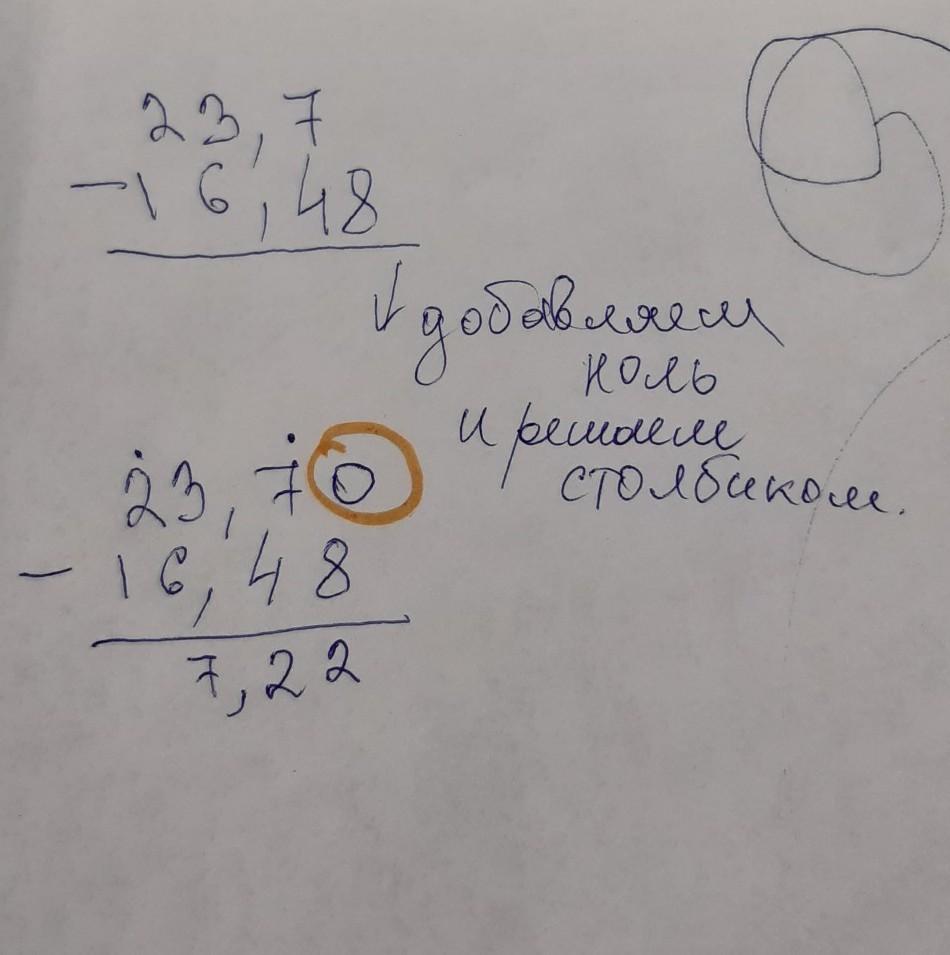 23,7
-16,48
↓добавляем
ноль
и решаем
столбиком.
23,70
- 16,48
7,22